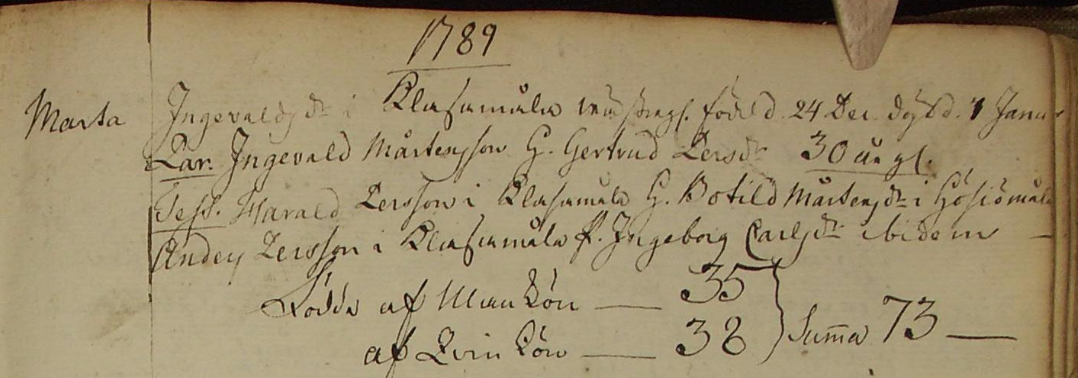 1789
Marta Ingevaldsdr i Klasamåla född d. 24 Dec. döpt d. 1 Janu
Par. Ingevald Mårtensson H. Gertrud Persdr 30 år gl.
Test. Harald Persson i Klasamåla H. Botild Mårtensdr i Hösiömåla
Anders Persson i Klasamåla P. Ingeborg Carlsdr ibidem —
Födde af Mankön — 35
af Qvinkön — 38 } Summa 73 —